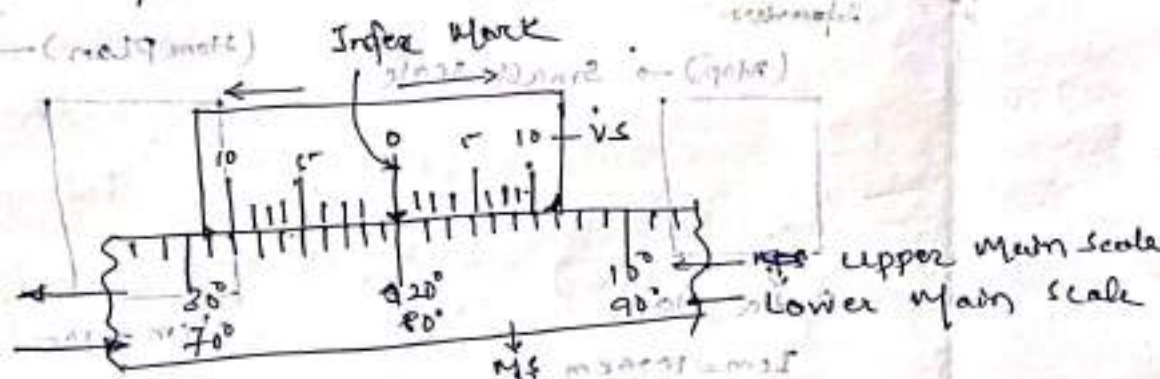 Infex Mark
10 5 0 5 10 VS
30° 20° 10° upper Main Scale
70° 80° 90° Lower Main Scale
MS